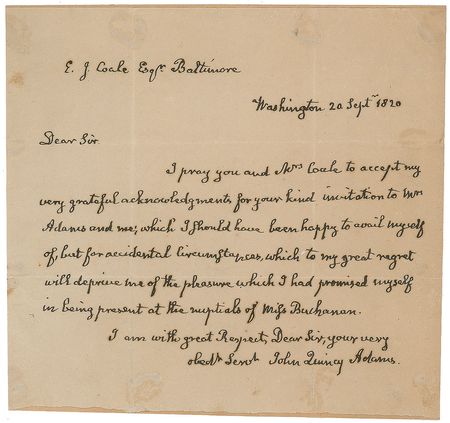 E. J. Coale Esqr. Baltimore
Washington 20 Septr 1820
Dear Sir.
I pray you and Mrs Coale to accept my
very grateful acknowledgments for your kind invitation to Mrs
Adams and me; which I should have been happy to avail myself
of, but for accidental circumstances, which to my great regret
will deprive me of the pleasure which I had promised myself
in being present at the nuptials of Miss Buchanan.
I am with great Respect, Dear Sir, your very
obedt Servt John Quincy Adams.